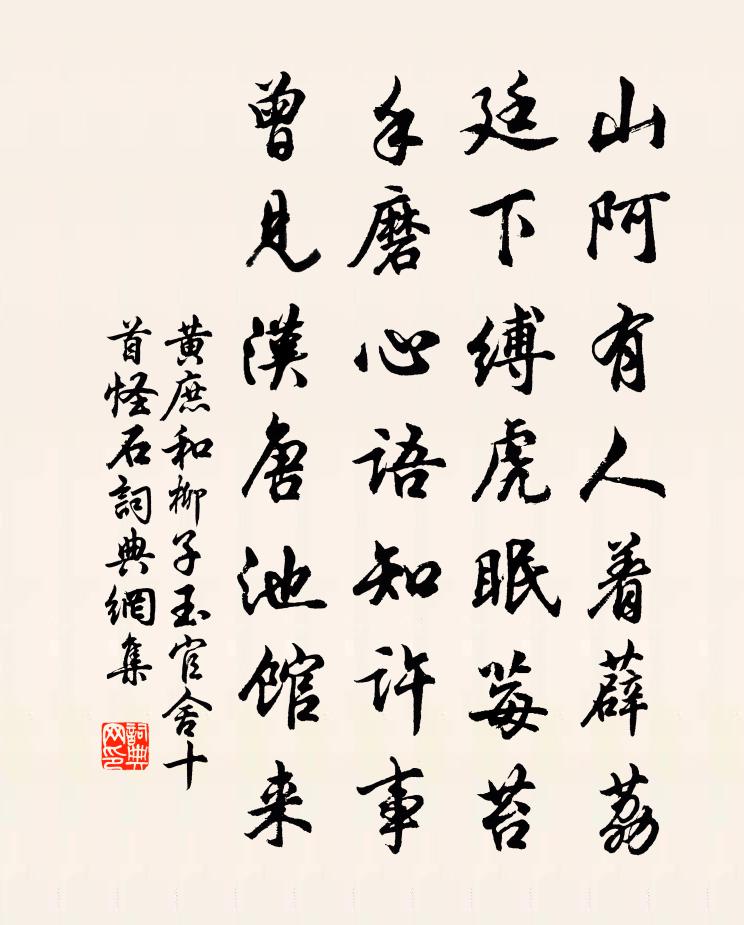 山阿有人着薜荔
廷下縛虎眠莓苔
手磨心語知許事
曾見漢唐池館来
黄庶和柳子玉官舍十
首怪石詞典網集
詞典
网印